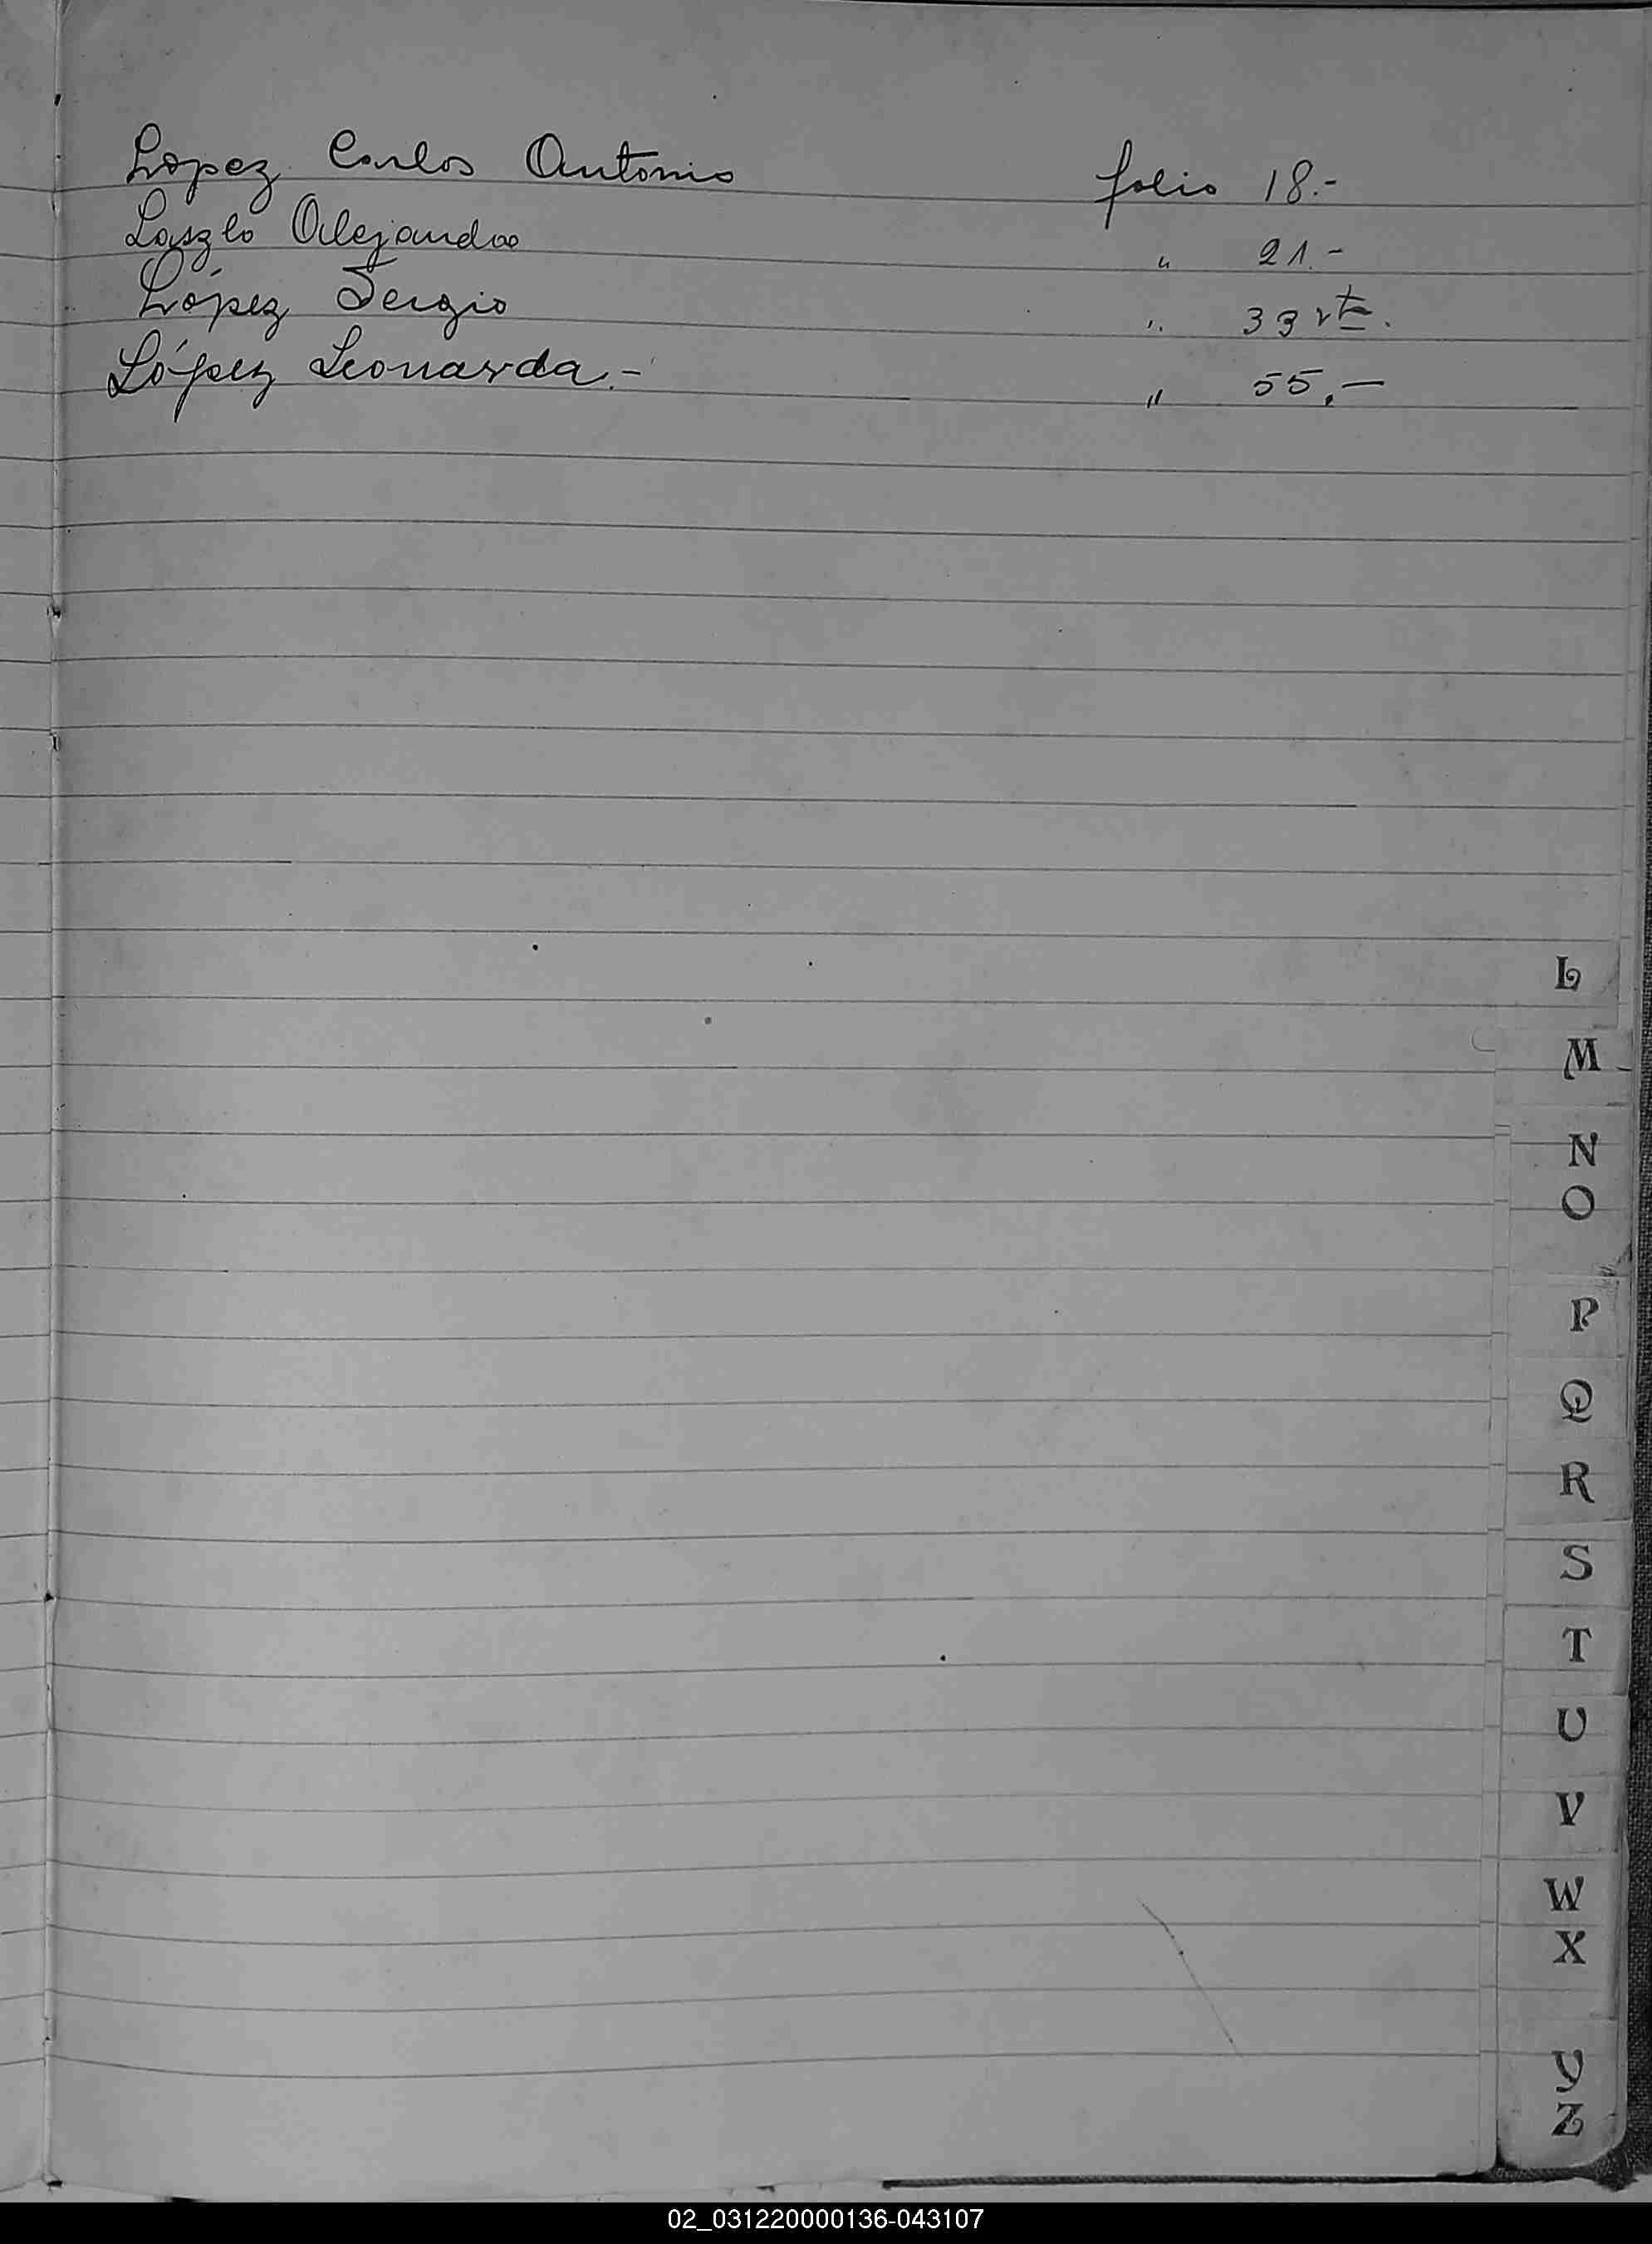 Lopez Carlos Antonio folio 18.-
Laszlo Alejandro " 21.-
López Sergio " 33 vta.
López Leonarda.- " 55.-
L
M
N
O
P
Q
R
S
T
U
V
W
X
Y
Z
02_031220000136-043107